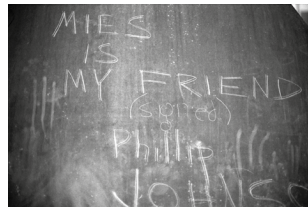 MIES
IS
MY FRIEND
(Signed)
Philip
JOHNSO